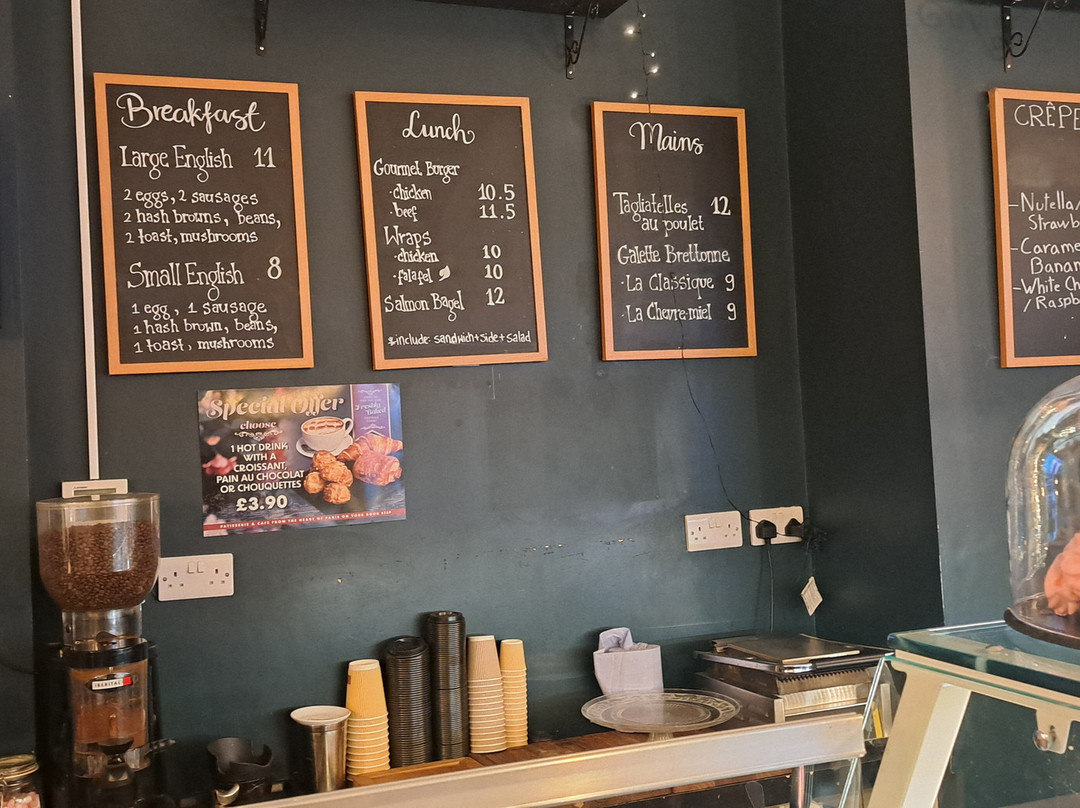 Breakfast
Large English 11
2 eggs, 2 sausages
2 hash browns, beans,
2 toast, mushrooms
Small English 8
1 egg, 1 sausage
1 hash brown, beans,
1 toast, mushrooms
Lunch
Gourmet Burger
·chicken 10.5
·beef 11.5
Wraps
·chicken 10
·falafel 10
Salmon Bagel 12
*include: sandwich+side+salad
Mains
Tagliatelles 12
au poulet
Galette Brettonne
·La Classique 9
·La Chevre-miel 9
CRÊPE
-Nutella/
Strawb
-Carame
Banan
-White Ch
/Raspb
Special Offer
choose
1 HOT DRINK
WITH A
CROISSANT,
PAIN AU CHOCOLAT
OR CHOUQUETTES
£3.90
PATISSERIE & CAFE FROM THE HEART OF PARIS ON YOUR DOOR STEP
Freshly
Baked
IBERITAL